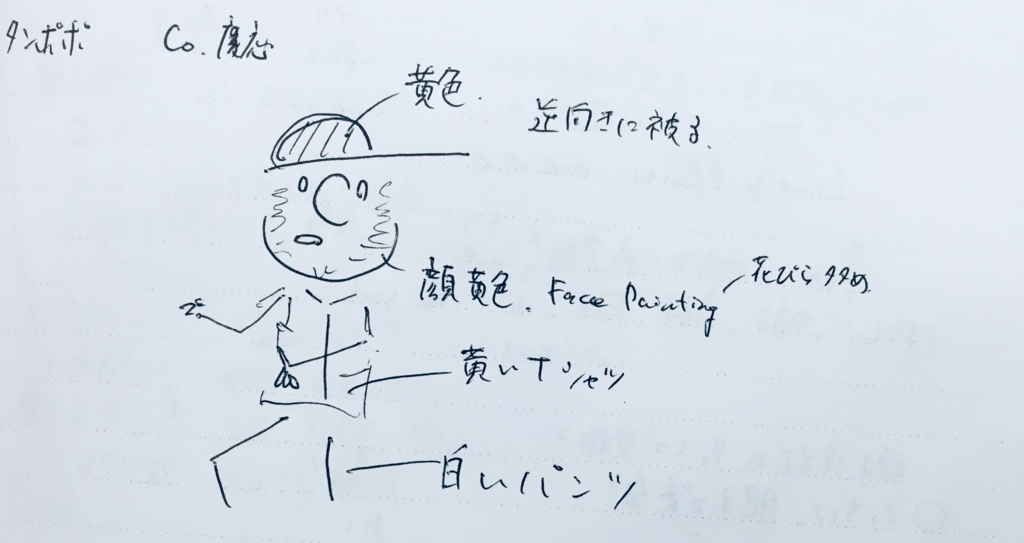 タンポポ Co. 慶応
黄色.
逆向きに被る.
顔黄色. Face Painting 花びら多め
黄いTシャツ
白いパンツ